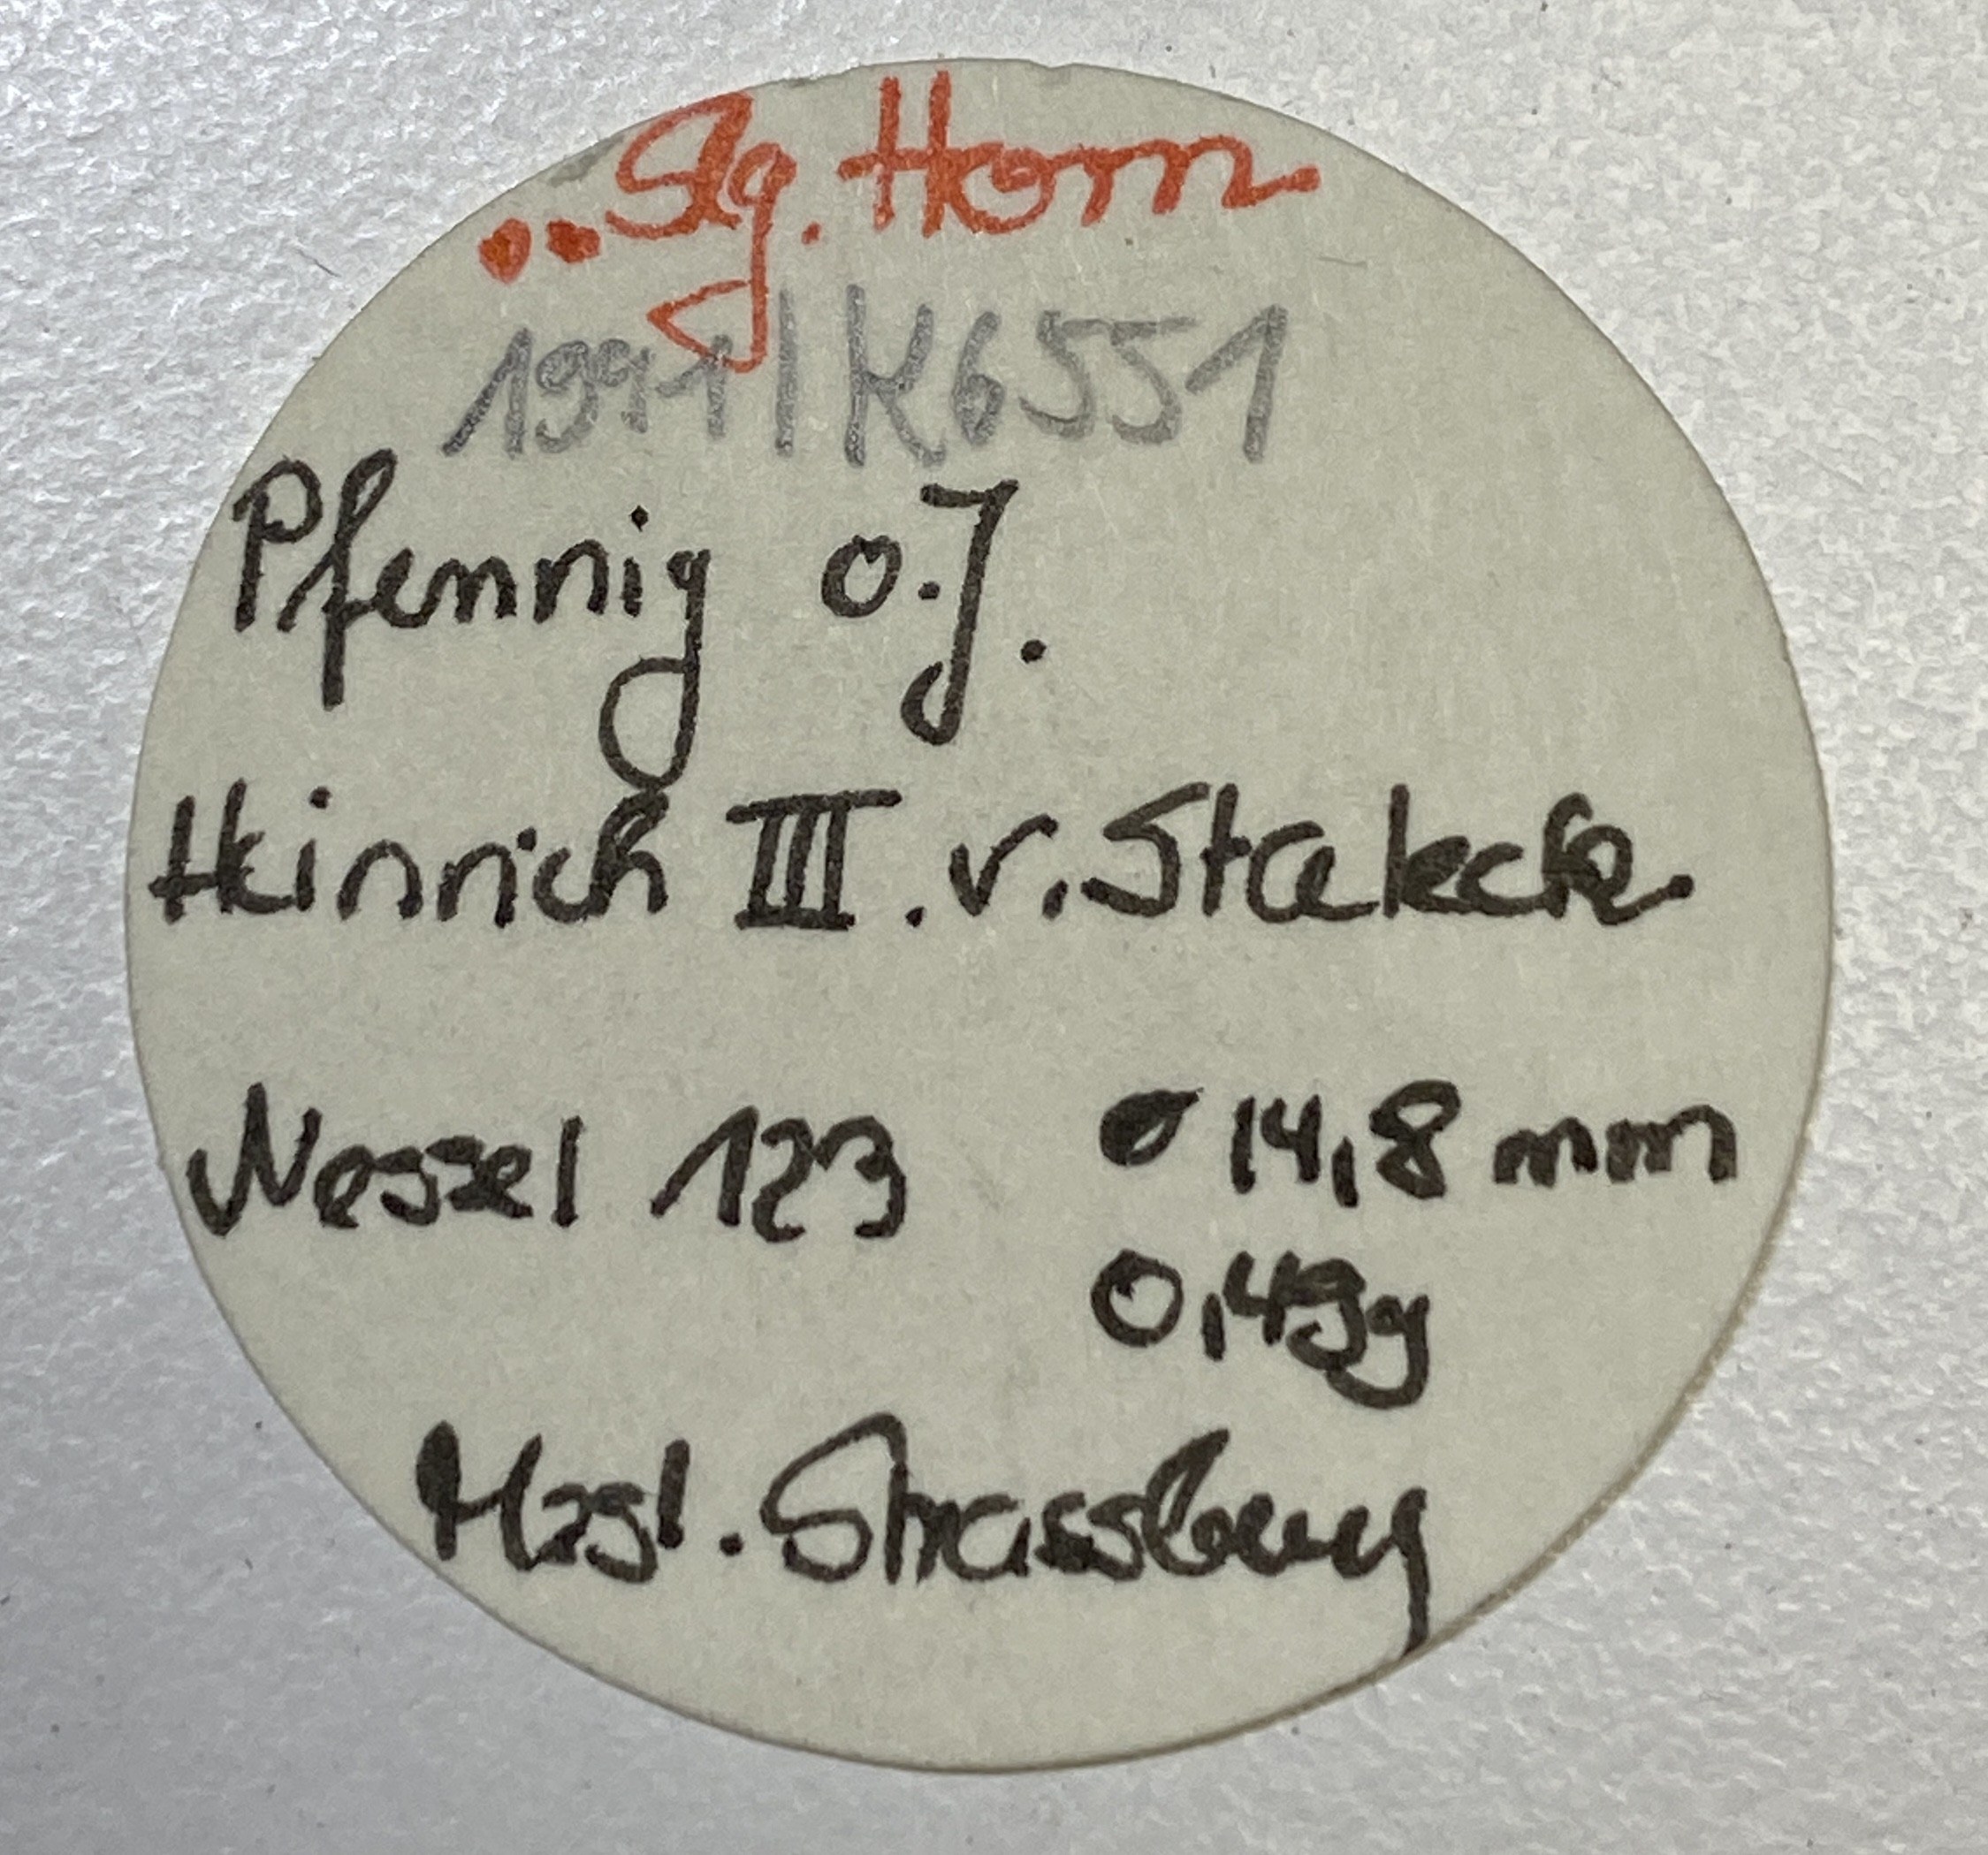 ..Slg. Horn.
1991 | K6551
Pfennig o.J.
Heinrich III. v. Staleck.
Nessel 123 ø 14,8 mm
0,49g
Mzst. Strassburg